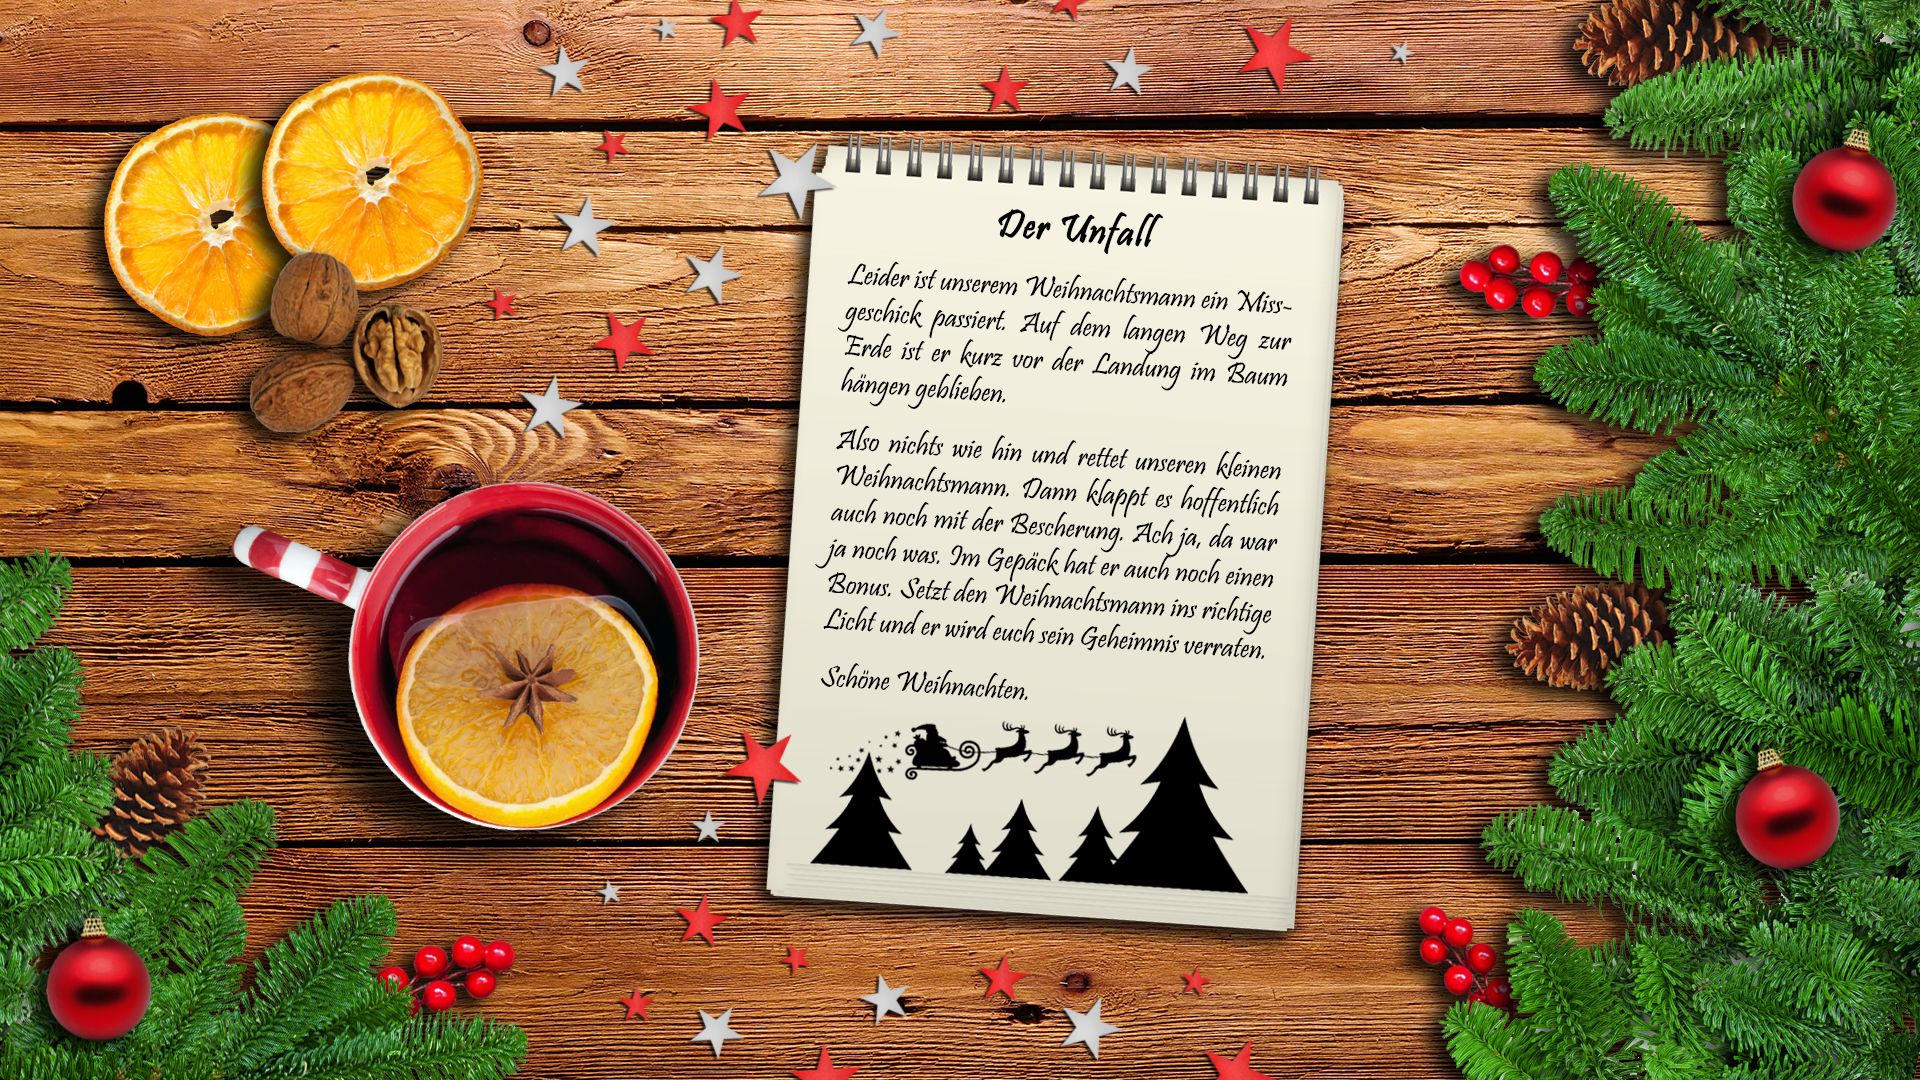 Der Unfall
Leider ist unserem Weihnachtsmann ein Miss-
geschick passiert. Auf dem langen Weg zur
Erde ist er kurz vor der Landung im Baum
hängen geblieben.
Also nichts wie hin und rettet unseren kleinen
Weihnachtsmann. Dann klappt es hoffentlich
auch noch mit der Bescherung. Ach ja, da war
ja noch was. Im Gepäck hat er auch noch einen
Bonus. Setzt den Weihnachtsmann ins richtige
Licht und er wird euch sein Geheimnis verraten.
Schöne Weihnachten.